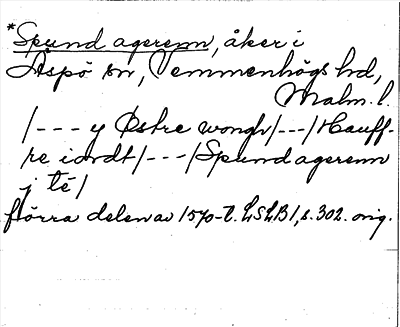 *Spund agerenn, åker i
Äspö sn, Vemmenhögs hd,
Malm. l.
/--- y Østre wongh/---/Hauff-
re iordt/---/Spund agerenn
j té/
förra delen av 1570-t. LSLB1, s. 302. orig.